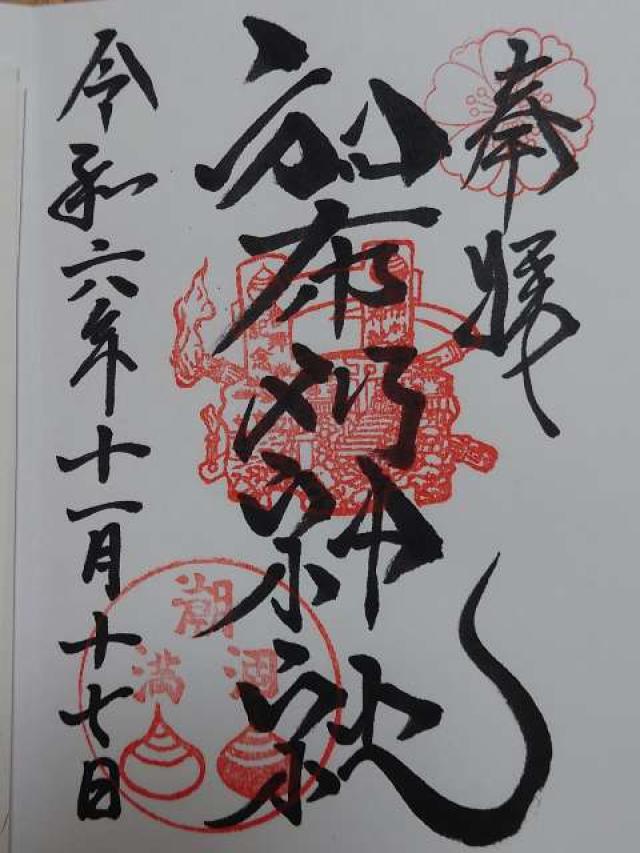 奉拝
和布刈神社
令和六年十一月十七日
潮
満
涸